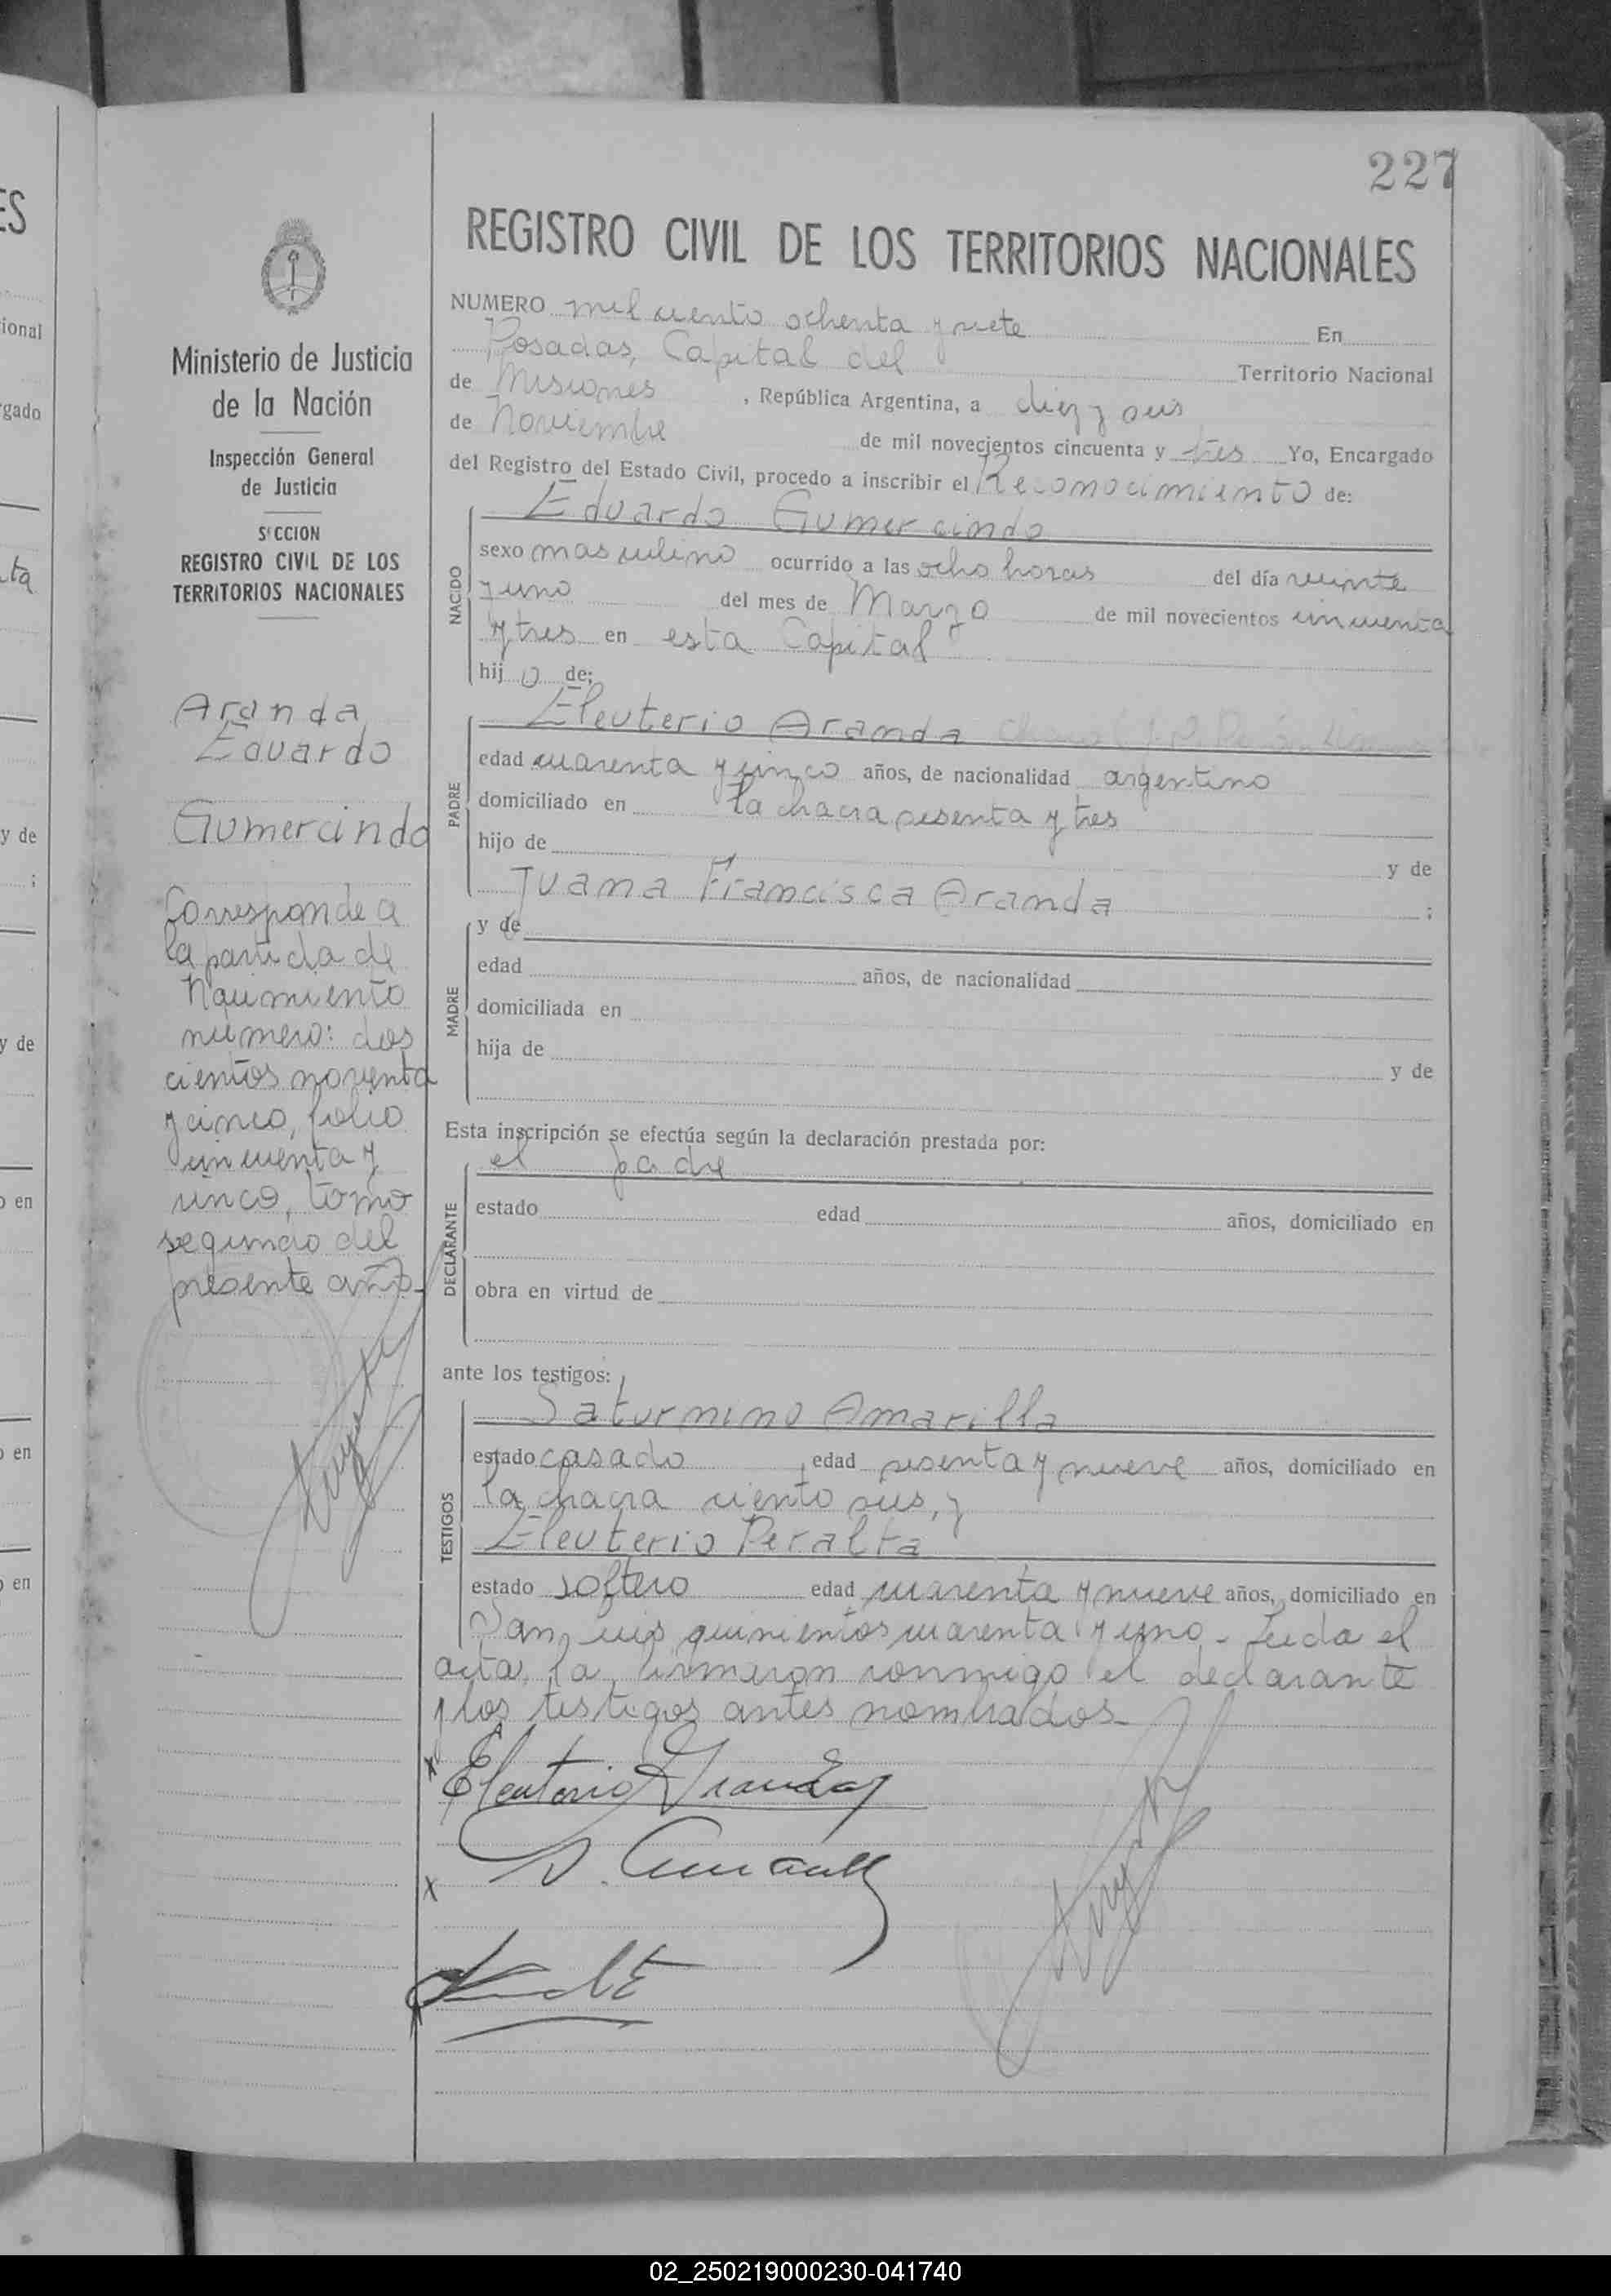 227
ES
ional
rgado
ta
y de
;
y de
o en
o en
o en
Ministerio de Justicia
de la Nación
Inspección General
de Justicia
SECCION
REGISTRO CIVIL DE LOS
TERRITORIOS NACIONALES
Aranda
Eduardo
Gumercindo
Corresponde a
la partida de
Nacimiento
número: dos
cientos noventa
y cinco, folio
cincuenta y
cinco, tomo
segundo del
presente año.
REGISTRO CIVIL DE LOS TERRITORIOS NACIONALES
NUMERO mil ciento ochenta y siete En
Posadas, Capital del Territorio Nacional
de Misiones , República Argentina, a diez y seis
de Noviembre de mil novecientos cincuenta y tres Yo, Encargado
del Registro del Estado Civil, procedo a inscribir el Reconocimiento de:
NACIDO
Eduardo Gumercindo
sexo masculino ocurrido a las ocho horas del día veinte
y uno del mes de Marzo de mil novecientos cincuenta
y tres en esta Capital
hij o de:
PADRE
Eleuterio Aranda
edad cuarenta y cinco años, de nacionalidad argentino
domiciliado en la chacra sesenta y tres
hijo de y de
Juana Francisca Aranda ;
MADRE
y de
edad años, de nacionalidad
domiciliada en
hija de y de
Esta inscripción se efectúa según la declaración prestada por:
DECLARANTE
el padre
estado edad años, domiciliado en
obra en virtud de
ante los testigos:
TESTIGOS
Saturnino Amarilla
estado casado edad sesenta y nueve años, domiciliado en
la chacra ciento seis, y
Eleuterio Peralta
estado soltero edad cuarenta y nueve años, domiciliado en
San Luis quinientos cuarenta y uno. Leida el
acta, la firmaron conmigo el declarante
y los testigos antes nombrados.
x Eleuterio Aranda
x S. Amarilla
02_250219000230-041740